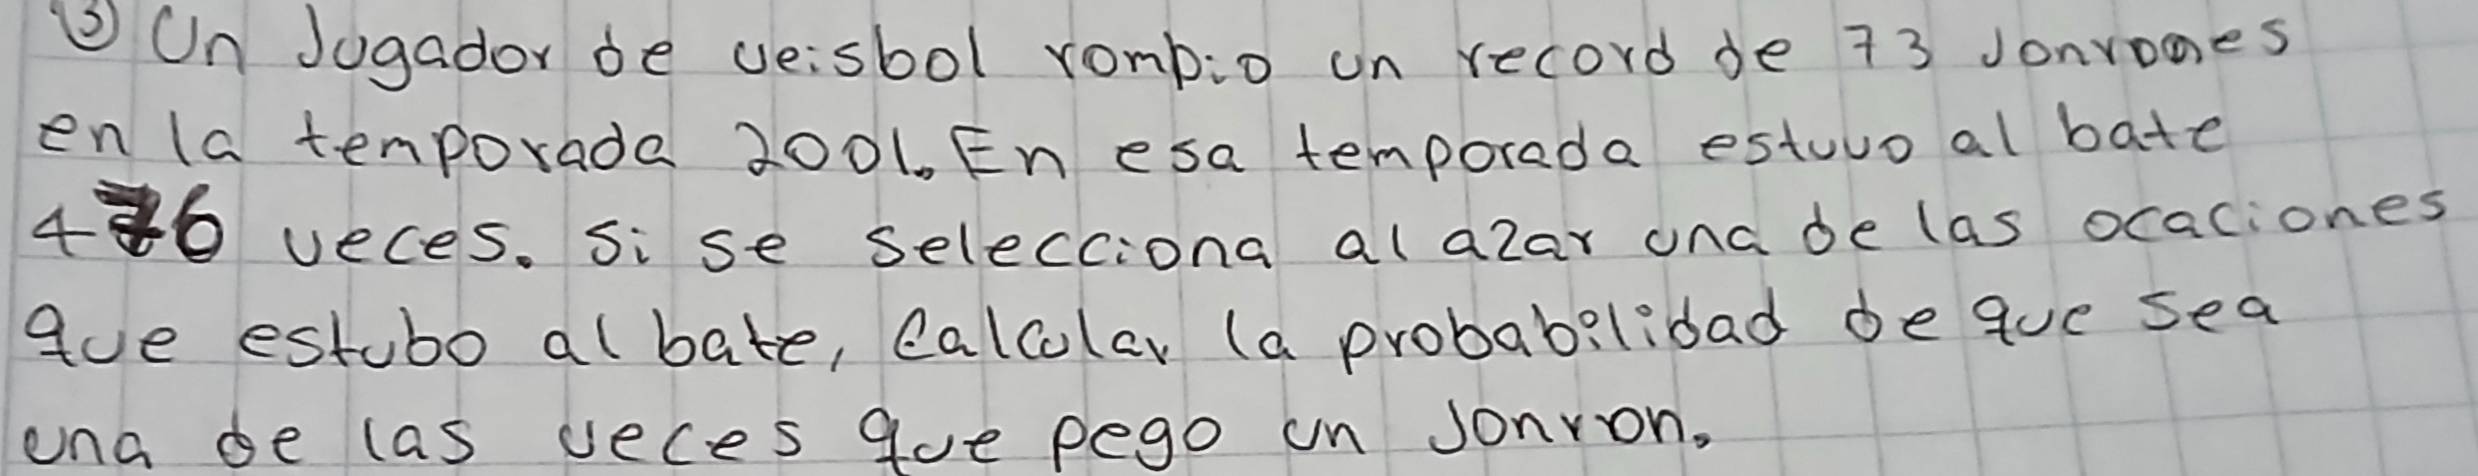 ③ Un Jugador de veisbol rompio un record de 73 Jonrones
en la temporada 2001. En esa temporada estuvo al bate
476 veces. Si se selecciona al azar una de las ocaciones
que estubo al bate, Calcular la probabilidad de que sea
una de las veces que pego un Jonron.